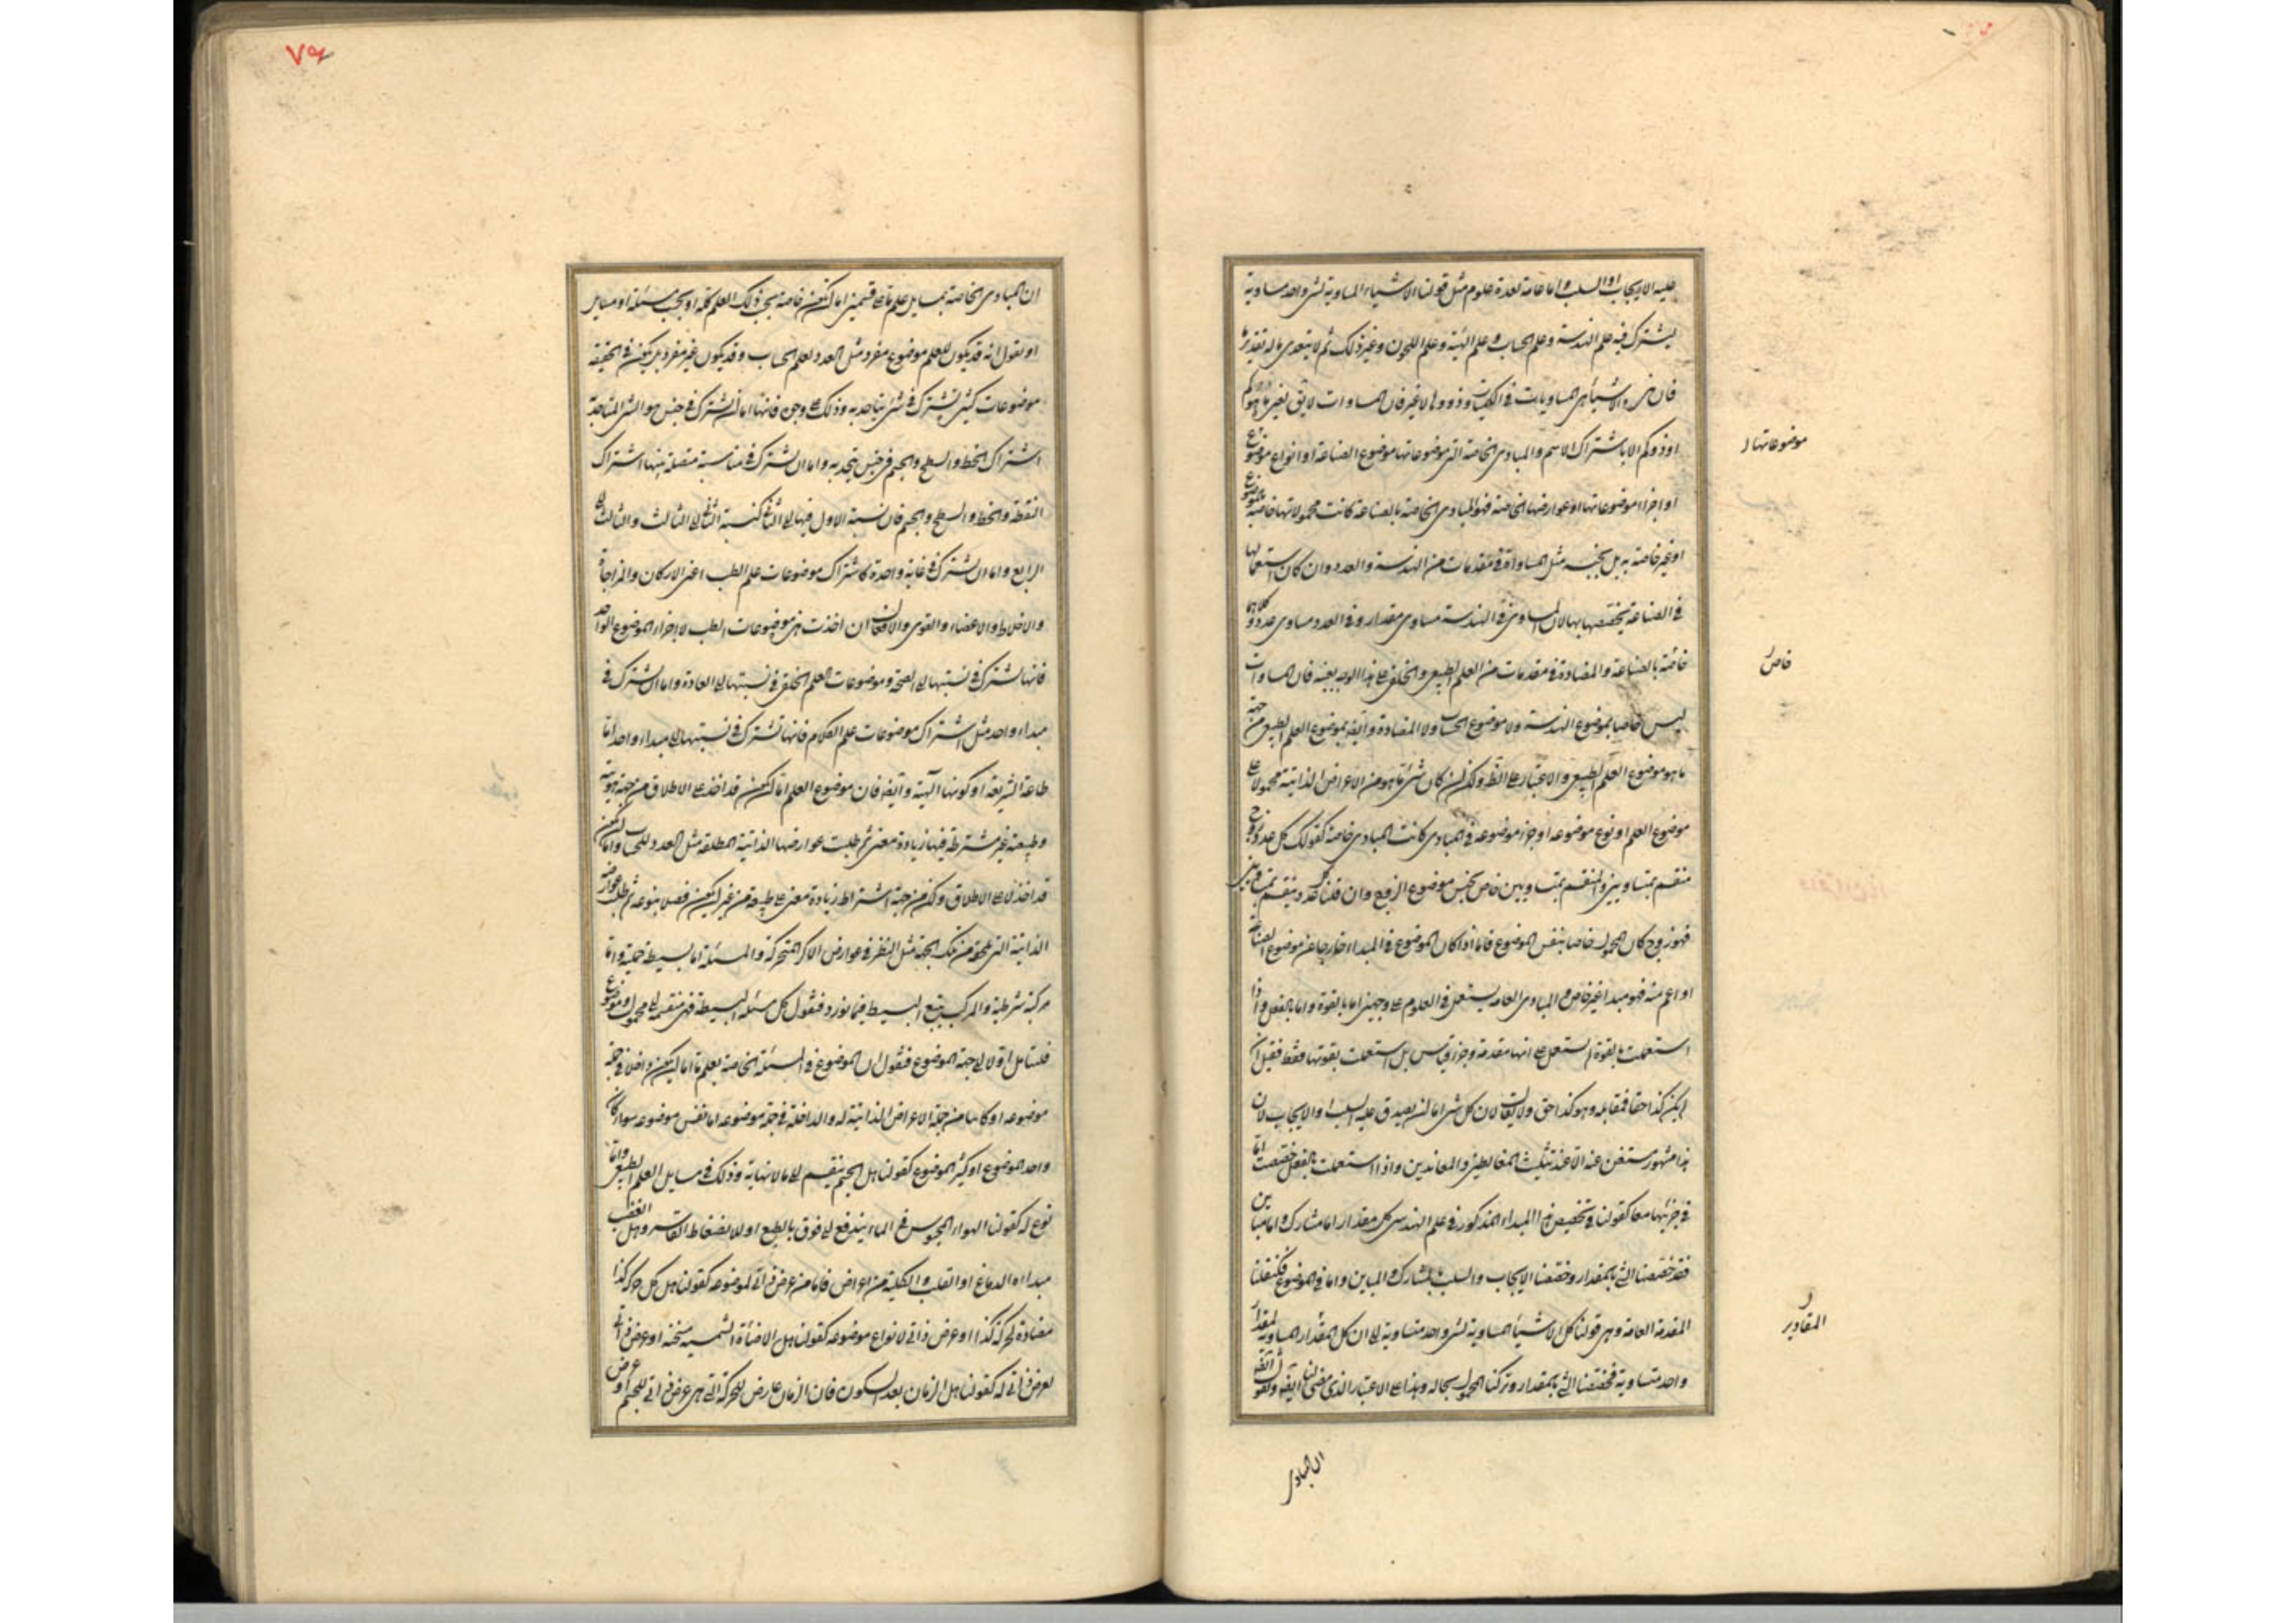 عليه الايجاب او السلب واما عامة لعدة علوم مثل قولنا الاشياء المساوية لشئ واحد متساوية
يشترك فيه علم الهندسة وعلم الحساب وعلم الهيئة وعلم اللحون وغير ذلك ثم لا يتعدى ما له تقدير ما
فان هذه الاشياء هي المساويات في الكميات وذووها لا غير فان المساوات لا يقال لغير ما هو كم
او ذو كم الا باشتراك الاسم والمبادى الخاصة التي موضوعاتها موضوع الصناعة او انواع موضوع
او اجزاء موضوعاتها او عوارضها الخاصة فهو المبادى الخاصة بالصناعة كانت محمولاتها خاصة بموضوع
او غير خاصة به بل بجنسه مثل المساواة في مقدمات من الهندسة والعدد وان كان استعمالها
في الصناعة يخصصها بها لان المساوى في الهندسة مساوى مقدار وفي العدد مساوى عدد وكلاهما
خاصة بالصناعة والمضادة في مقدمات من العلم الطبيعي والخلقي على هذا الوجه بعينه فان المساوات
ليس خاصيا بموضوع الهندسة ولا موضوع الحساب ولا المضادة وايضا بموضوع العلم الطبيعي من جهة
ما هو موضوع العلم الطبيعي والاعتبار على النظر ولكن ان كان شئ ما هو من الاعراض الذاتية محمولا على
موضوع العلم او نوع موضوعه او جزء موضوعه في المبادى كانت المبادى خاصة كقولك كل عدد زوج
منقسم بمتساويين والمنقسم بمتساويين خاص بجنس موضوع الزوج وان قلنا كل عدد ينقسم بمتساويين
فهو زوج كان المحمول خاصا بنفس الموضوع فاما اذا كان الموضوع في المبداء خارجا عن موضوع الصناعة
او اعم منه فهو مبدا غير خاص والمبادى العامة يستعمل في العلوم على وجهين اما بالقوة واما بالفعل واذا
استعملت بالقوة لم يستعمل على انها مقدمة وجزء قياس بل استعملت بقوتها فقط فقيل ان
لم يكن كذا حقا فمقابله وهو كذا حق ولا يقال لان كل شئ اما ان يصدق عليه السلب او الايجاب لان
هذا مشهور مستغن عنه الا عند تبكيت المغالطين والمعاندين واذا استعملت بالفعل خصصت اما
في جزئيها معا كقولنا في تخصيص هذا المبداء المذكور في علم الهندسة كل مقدار اما مشارك واما مباين
فقد خصصنا الشئ بالمقدار وخصصنا الايجاب والسلب بالمشارك والمباين واما في الموضوع فكنقلنا
المقدمة العامة وهي قولنا كل الاشياء المساوية لشئ واحد متساوية الى ان كل المقدار المساوية لمقدار
واحد متساوية فخصصنا الشئ بالمقدار وتركنا المحمول بحاله وهذا على الاعتبار الذي مضى لنا ايضا ولنقول
موضوعاتها
خاص
المقادير
ان المبادى
٧٩
ان المبادى الخاصة بمسايل علم ما على قسمين اما ان تكون خاصة بحسب ذلك العلم كله او بحسب مسئلة او مسايل
او نقول انه قد يكون للعلم موضوع مفرد مثل العدد لعلم الحساب وقد يكون غير مفرد بل يكون في الحقيقة
موضوعات كثيرة تشترك في شئ يتاحد به وذلك على وجوه فانها اما ان تشترك في جنس هو الشئ المتاحد به
اشتراك الخط والسطح والجسم في جنس يتحد به واما ان تشترك في مناسبة متصلة بينها اشتراك
النقطة والخط والسطح والجسم فان نسبة الاول منها الى الثاني كنسبة الثاني الى الثالث والثالث الى
الرابع واما ان تشترك في غاية واحدة كاشتراك موضوعات علم الطب اعني الاركان والمزاجات
والاخلاط والاعضاء والقوى والافعال ان اخذت هي موضوعات الطب لا اجزاء الموضوع الواحد
فانها تشترك في نسبتها الى الصحة وموضوعات العلم الخلقي في نسبتها الى العادة واما ان تشترك في
مبداء واحد مثل اشتراك موضوعات علم الكلام فانها تشترك في نسبتها الى مبداء واحد اما
طاعة الشريعة او كونها آلهية وايضا فان موضوع العلم اما ان يكون قد اخذ على الاطلاق من جهة هويته
وطبيعته غير مشترطة فيها زيادة معنى ثم طلبت عوارضها الذاتية المطلقة مثل العدد للحساب واما ان يكون
قد اخذ لا على الاطلاق ولكن من جهة اشتراط زيادة معنى على طبيعته من غير ان يكون فصلا ينوعه ثم طلبت عوارضه
الذاتية التي تلحقه من تلك الجهة مثل النظر في عوارض الاكر المتحركة والمسئلة اما بسيطة حملية واما
مركبة شرطية والمركب يتبع البسيط فيما نورد فنقول كل مسئلة بسيطة فهي منقسمة الى محمول وموضوع
فلنتامل اولا الى جهة الموضوع فنقول ان الموضوع في المسئلة الخاصة بعلم ما اما ان يكون داخلا في جملة
موضوعه او كاينا من جملة الاعراض الذاتية له والداخلة في جملة موضوعه اما نفس موضوعه سواء كان
واحد الموضوع او كثير الموضوع كقولنا هل الجسم ينقسم الى ما لا نهاية وذلك في مسايل العلم الطبيعي واما
نوع له كقولنا الهواء المحبوس في الماء يندفع الى فوق بالطبع او لانضغاط القاسر وهل العصب
مبداءه الدماغ او القلب والكلية من اعراض فاما من عرض ذاتي لموضوعه كقولنا هل كل حركة كذا
مضادة لحركة كذا او عرض ذاتي لانواع موضوعه كقولنا هل الاضاءة الشمسية مسخنة او عرض ذاتي
لعرض ذاتي له كقولنا هل الزمان بعد السكون فان الزمان عارض للحركة التي هي عرض ذاتي للجسم او عرض